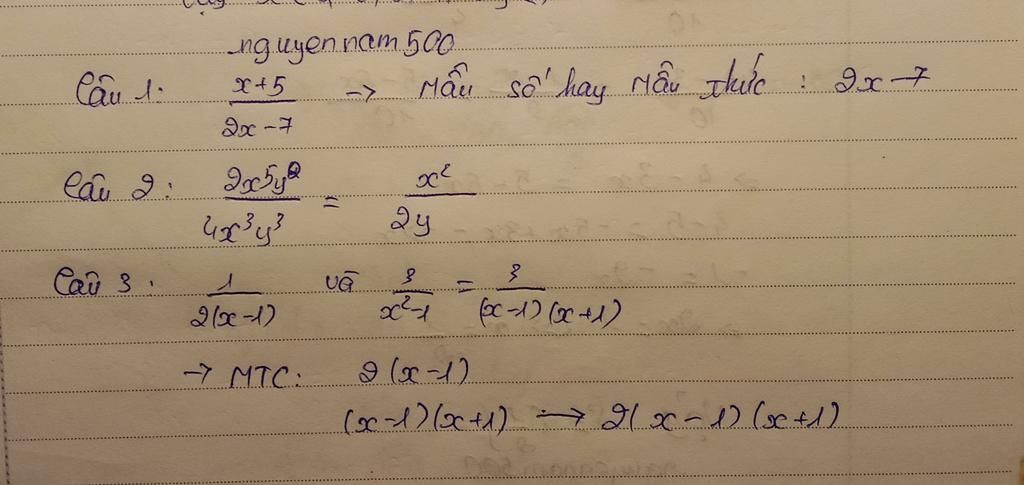 nguyennam500
Câu 1: x+5/2x-7 → Mẫu số hay Mẫu thức : 2x-7
Câu 2: 2x⁵y²/4x³y³ = x²/2y
Câu 3. 1/2(x-1) và 3/x²-1 = 3/(x-1)(x+1)
→ MTC: 2(x-1)
(x-1)(x+1) → 2(x-1)(x+1)